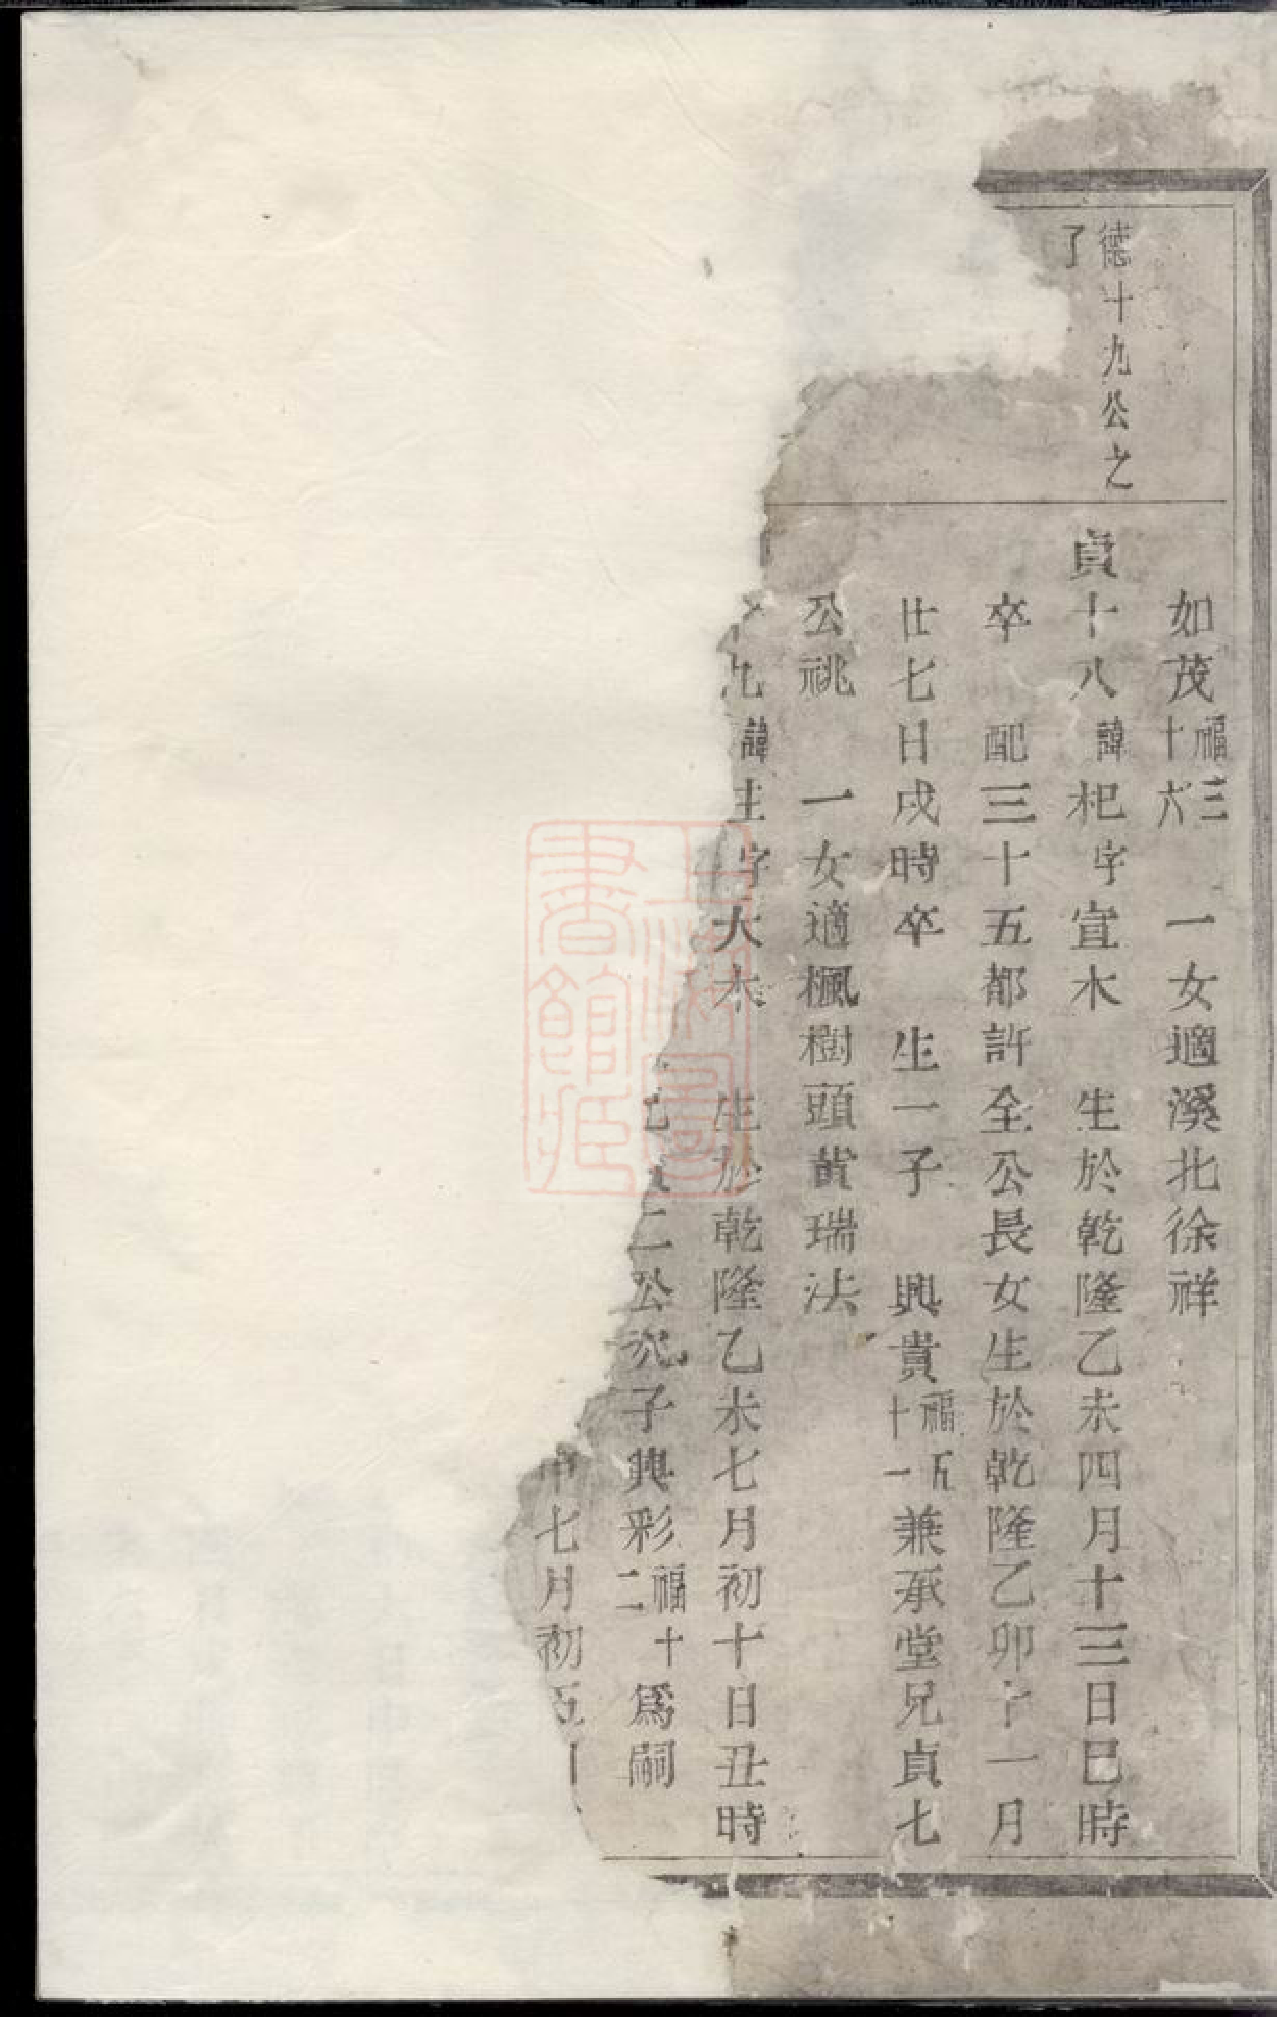 如茂福三十六　一女適溪北徐祥
德十九公之
子
貞十八諱杞字宜木　生於乾隆乙未四月十三日巳時
卒　配三十五都許全公長女生於乾隆乙卯十一月
廿七日戌時卒　生一子　興貴福五十一兼承堂兄貞七
公祧　一女適楓樹頭黃瑞法
九諱　字大木　生於乾隆乙未七月初十日丑時
二公次子興彩福十二為嗣
七月初五
上海圖書館藏